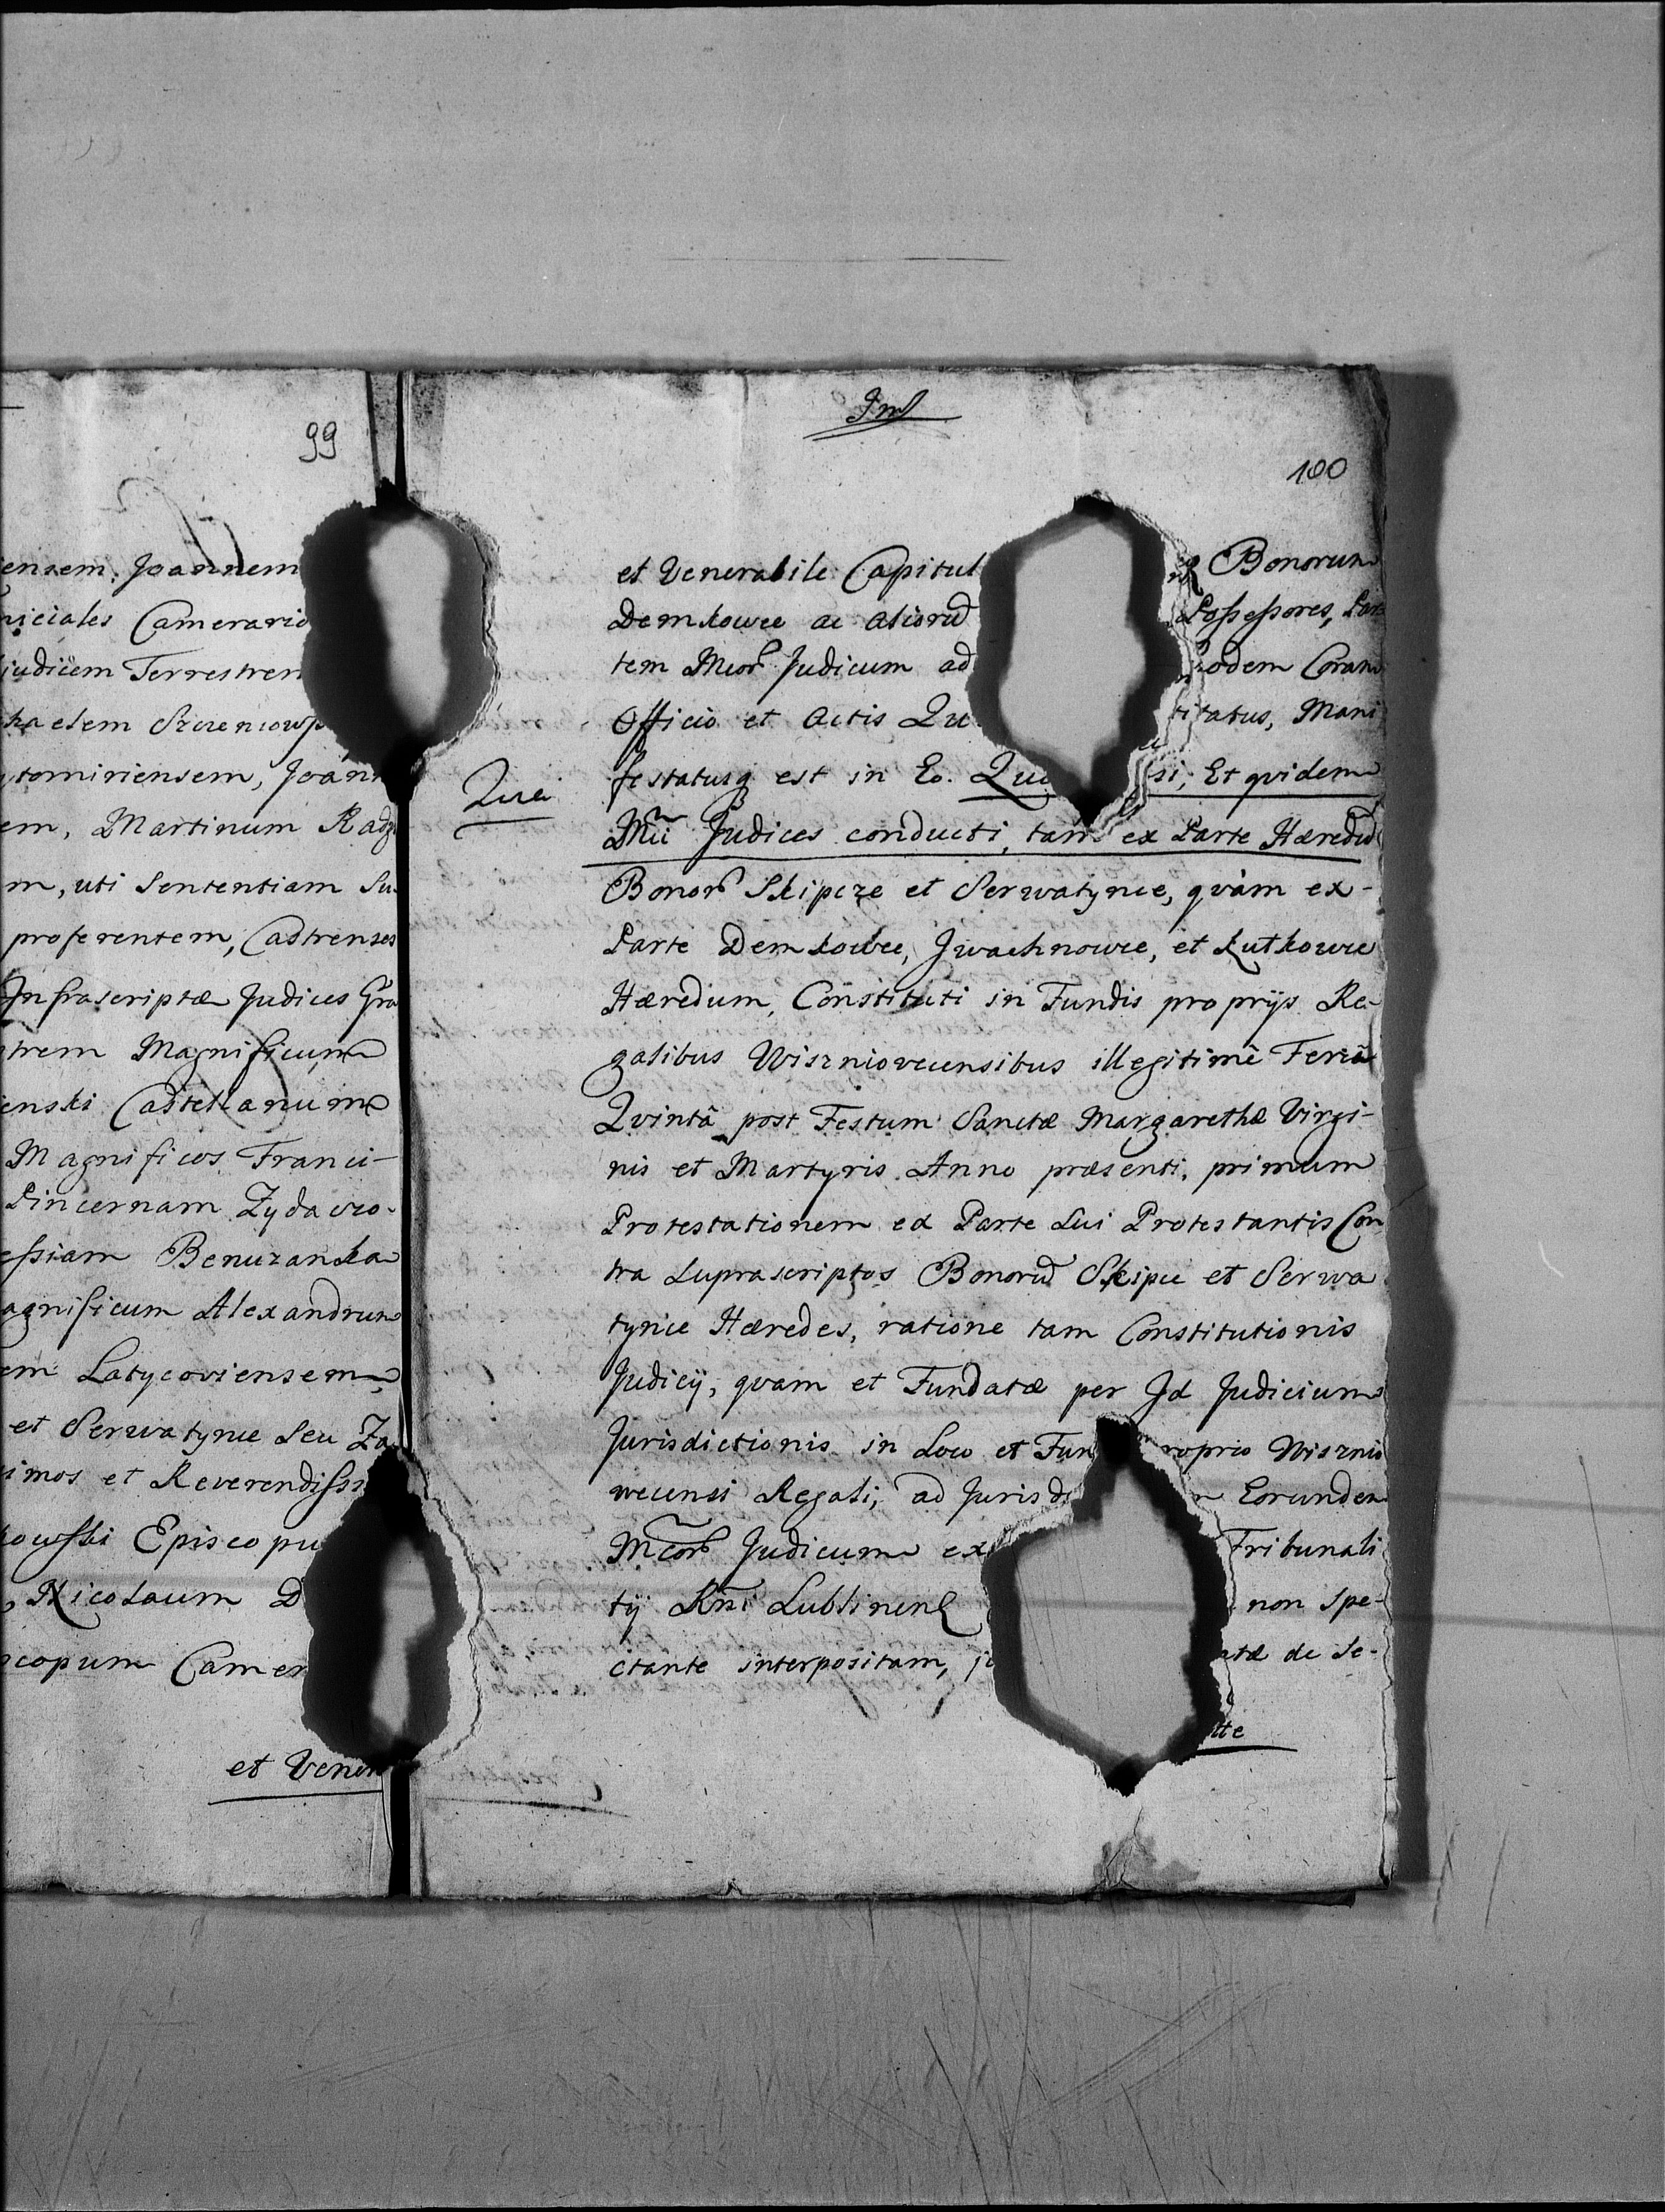 99
ensem, Joannem
niciales Camerario
judicem Terrestrem
haelem
tomiriensem, Joann
em, Martinum Radz
m, uti Sententiam Su
proferentem, Castrenses
Infrascriptæ Judices Gra
trem Magnificum
enski Castellanum
Magnificos Franci-
Pincernam Zydaczo-
eßiam Benuzanska
agnificum Alexandrum
em Latyczoviensem
et Serwatynce Seu Za
imos et Reverendißi
kowski Episcopu
Nicolaum D
scopum Camen
et Vener
Jml
100
et Venerabile Capitul Bonorum
Demkowce ac aliorũ Poßeßores, Par
tem Mcor̃ Judicum ad eodem Coram
Officio et Actis Qu titatus, Mani
festatusq est in Eo. Quo si, Et qvidem
Qua
Mũi Judices conducti, tam ex Parte Hæredũ
Bonor̃ Skipcze et Serwatynce, qvàm ex-
Parte Demkowce, Jwachnowce, et Rutkowce
Hæredum, Constituti in Fundis proprijs Re-
galibus Wiszniovecensibus illegitimè Feriâ
Qvintâ post Festum Sanctæ Margarethæ Virgi-
nis et Martyris Anno præsenti, primum
Protestationem ex Parte Sui Protestantis Con
tra Suprascriptos Bonorũ Skipce et Serwa
tynce Hæredes, ratione tam Constitutionis
Judicij, qvam et Fundatæ per Jd Judicium
Jurisdictionis in Loco et Fun roprio Wisznio
wecensi Regali, ad Jurisdi Eorundem
Mcor̃ Judicum ex Tribunali
tij Rñi Lublinen non Spe-
ctante interpositam, atæ de Se-
tte